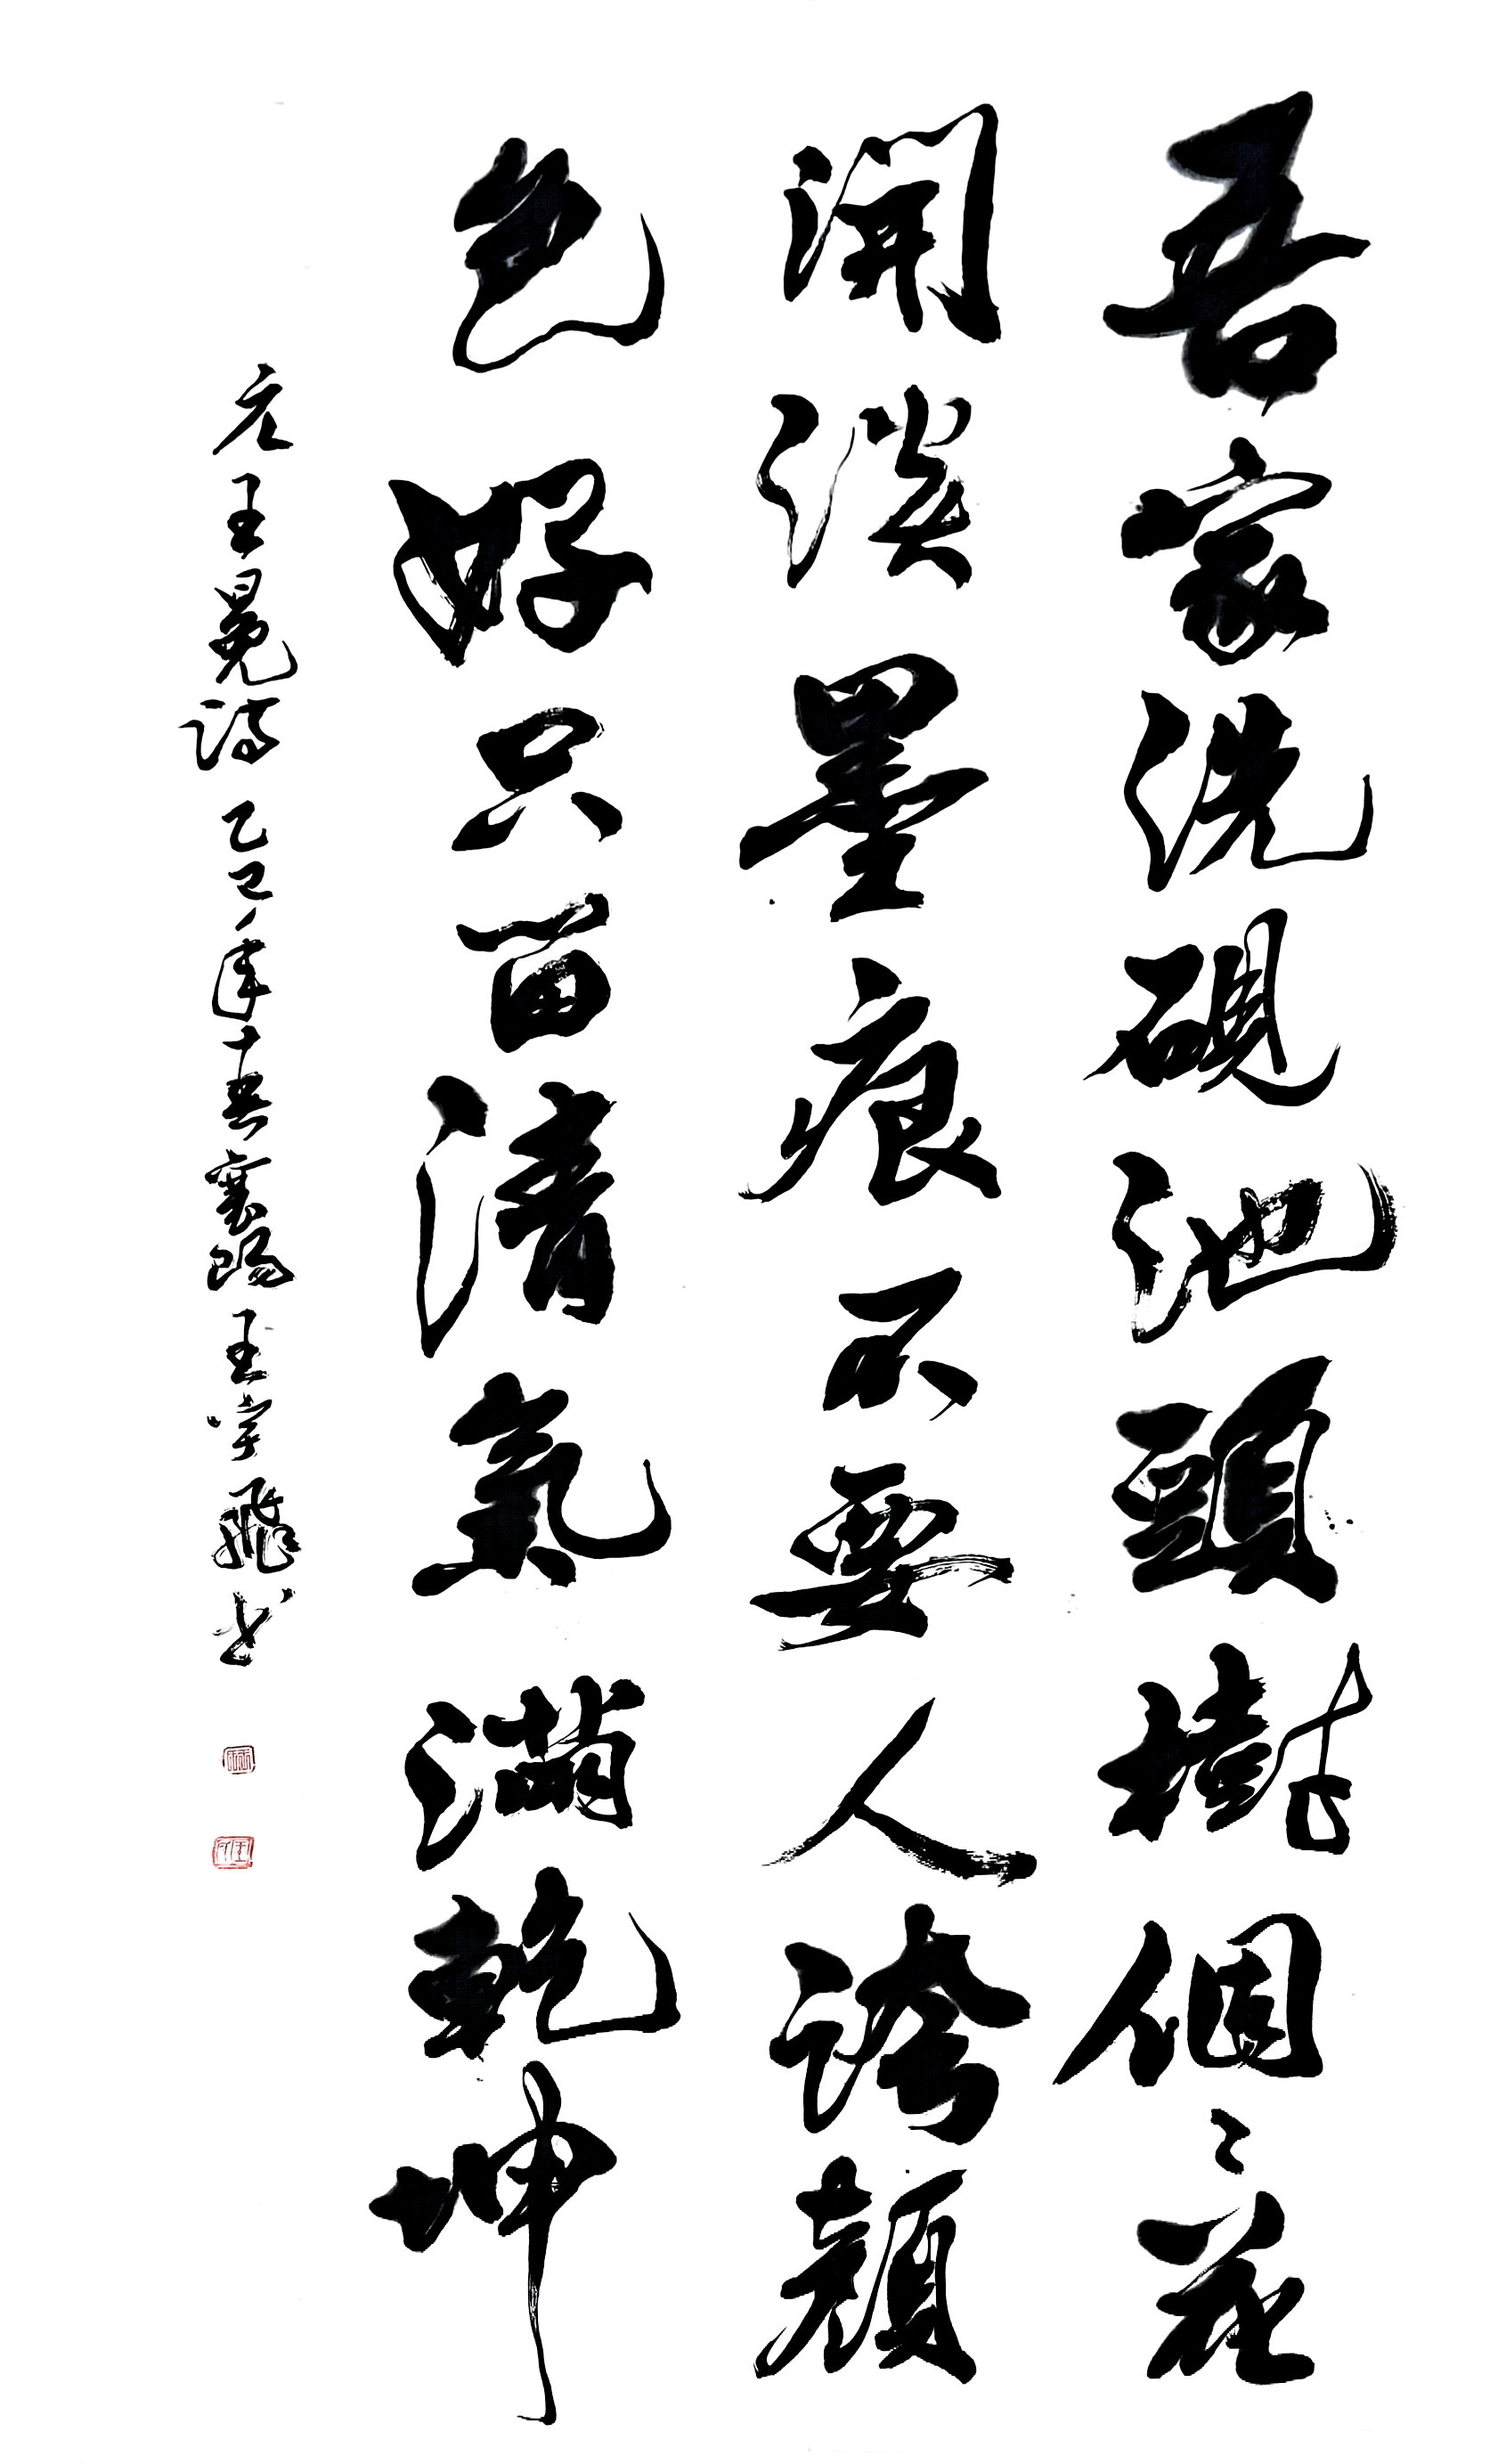 吾家洗硯池頭樹個々花
開淡墨痕不要人誇顏
色好只留清氣滿乾坤
元王冕詩 乙巳年襄陽王宇飛书